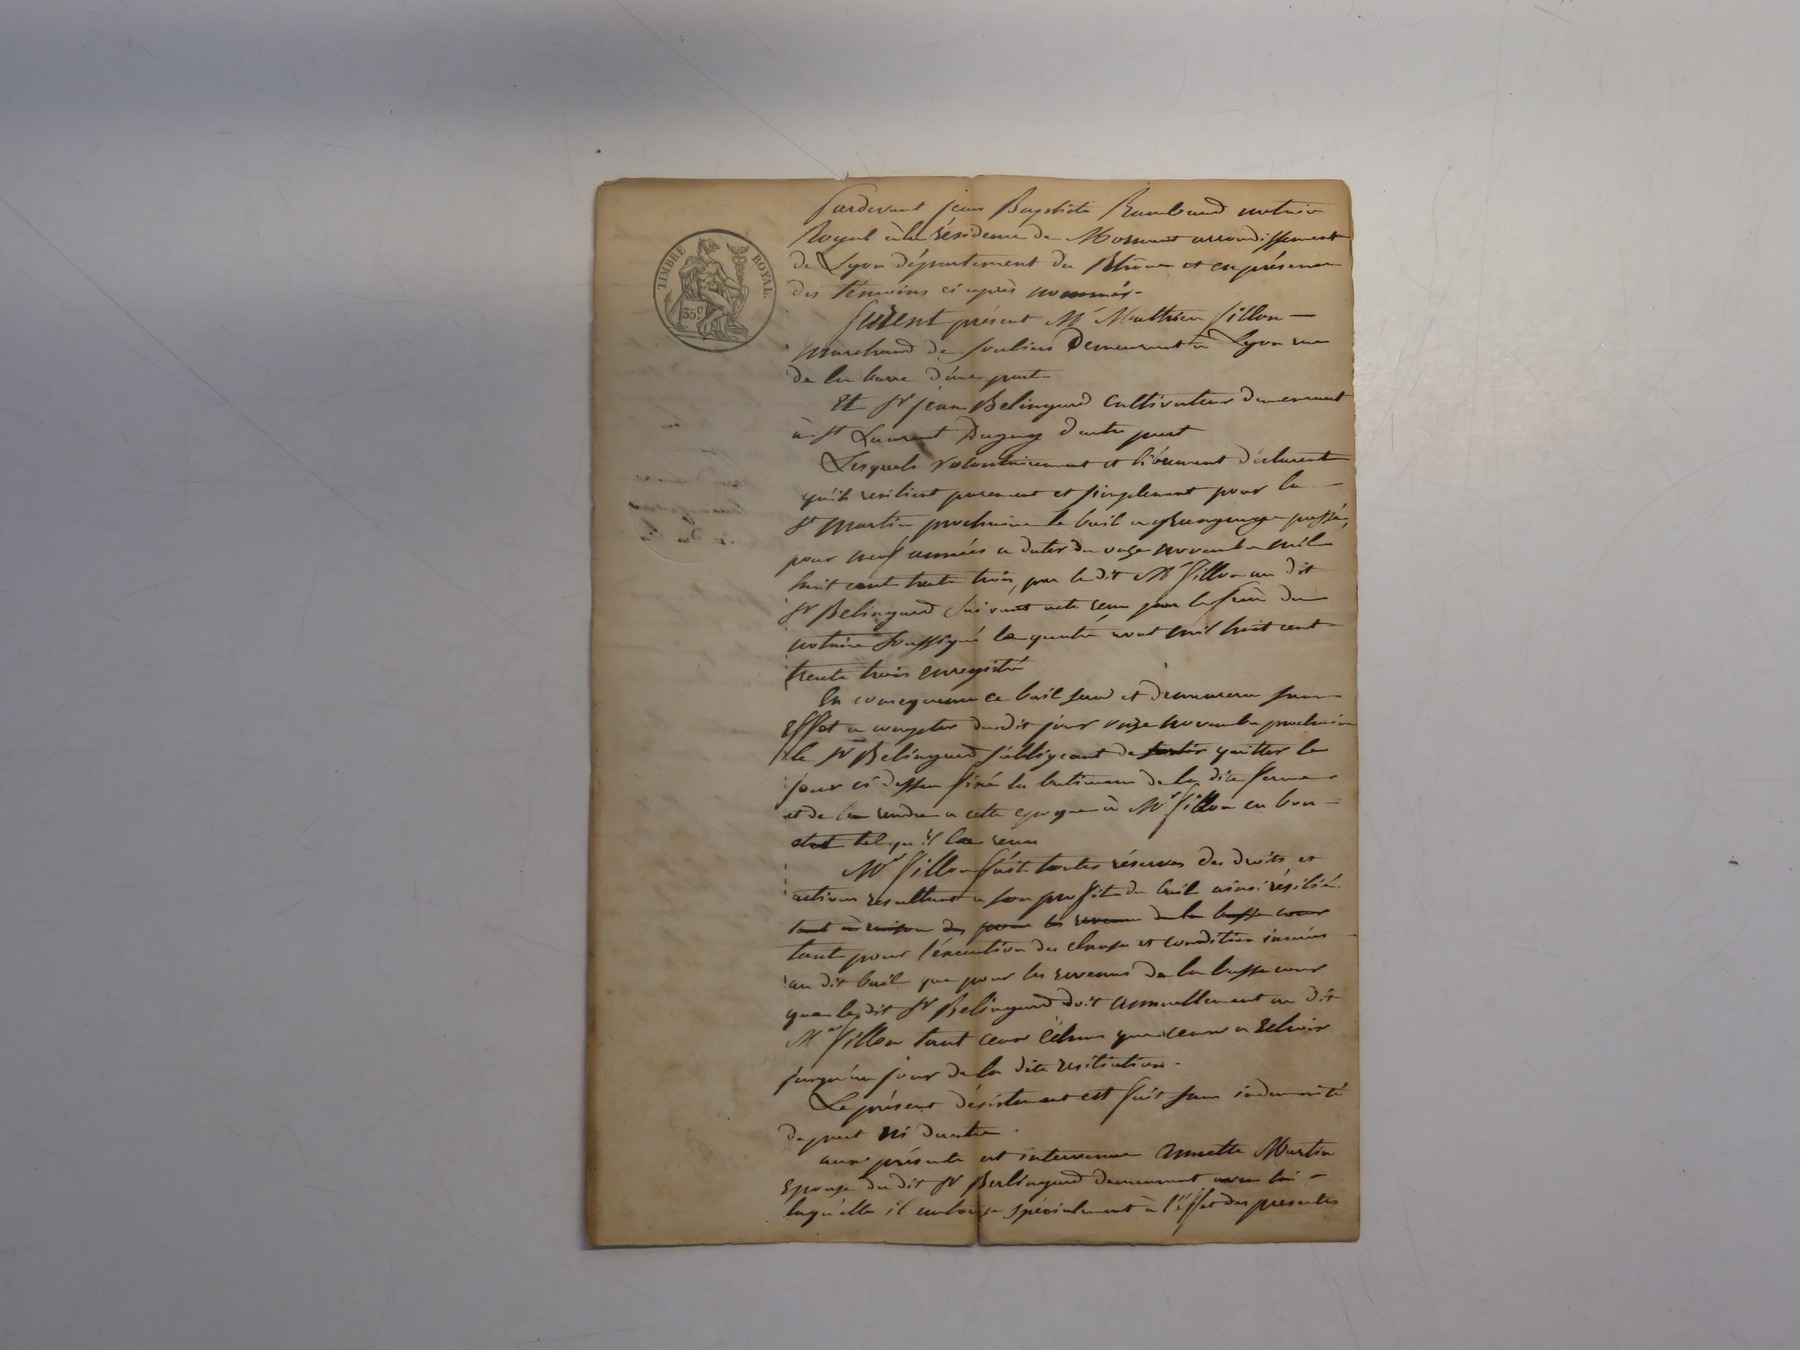 TIMBRE ROYAL.
35 c
Pardevant Jean Baptiste Rambaud notaire
Royal à la résidence de Mornant arrondissement
de Lyon département du Rhône et en présence
des témoins ci après nommés.
Furent présent Mr Matthieu Fillon
marchand de souliers demeurant à Lyon rue
de la barre d'une part
Et Sr jean Belingard Cultivateur demeurant
à St Laurent Dagny d'autre part
Lesquels volontairement et librement déclarent
qu'ils resilient purement et simplement pour la
St Martin prochaine le bail a passé,
pour neuf années a dater du onze novembre mil
huit cent trente trois, par le dit Mr Fillon au dit
Sr Belingard suivant acte reçu par le
notaire soussigné le quatre aout mil huit cent
trente trois enregistré
En consequence ce bail sera et demeurera sans
Effet a compter du dit jour onze novembre prochain
le Sr Belingard s'obligeant de sortir quitter le
jour ci dessus fixé les batimens de la dite ferme
et de les rendre a cette epoque à Mr Fillon en bon
etat tel qu'il les a reçu
Mr Fillon fait toutes réserves des droits et
actions resultant a son profit du bail ainsi résilié.
tant à raison des pour les revenus de la basse cour
tant pour l'éxecution des clauses et condition inserées
au dit bail que pour les revenus de la basse cour
que le dit Sr Belingard doit annuellement au dit
Mr Fillon tant ceux échus que ceux a echoir
jusqu'au jour de la dite resiliation.
Le présent désistement est fait sans indemnité
de part ni d'autre.
aux présentes est intervenue Annette Martin
Epouse du dit Sr Berlingard demeurant avec lui
laquelle il autorise spécialement à l'effet des presentes